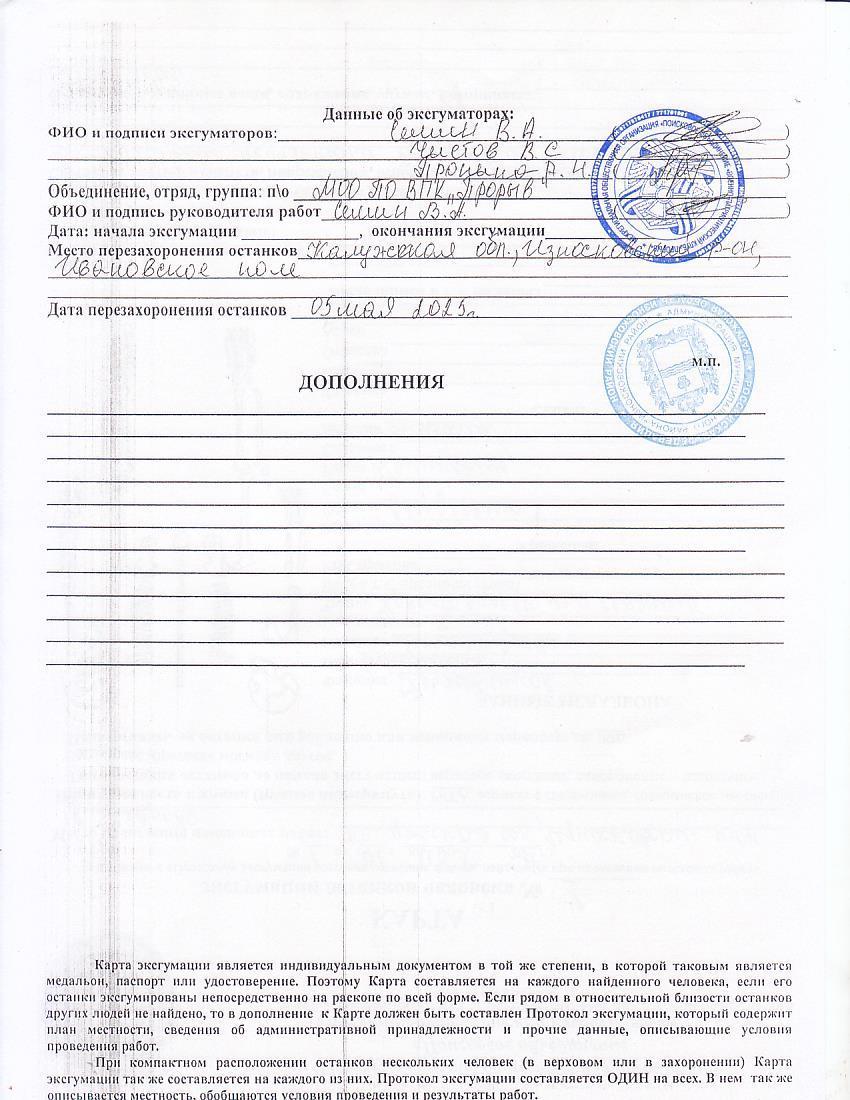 Данные об эксгуматорах:
ФИО и подписи эксгуматоров: Семин В.А. )
Чистов В С )
Р.И. ( )
Объединение, отряд, группа: п\о МОО ПО ВПК „Прорыв"
ФИО и подпись руководителя работ Семин В.А. )
Дата: начала эксгумации , окончания эксгумации
Место перезахоронения останков Калужская обл., Износковский р-он,
Ивановское поле
Дата перезахоронения останков 05 мая г.
М.П.
ДОПОЛНЕНИЯ
Карта эксгумации является индивидуальным документом в той же степени, в которой таковым является
медальон, паспорт или удостоверение. Поэтому Карта составляется на каждого найденного человека, если его
останки эксгумированы непосредственно на раскопе по всей форме. Если рядом в относительной близости останков
других людей не найдено, то в дополнение к Карте должен быть составлен Протокол эксгумации, который содержит
план местности, сведения об административной принадлежности и прочие данные, описывающие условия
проведения работ.
При компактном расположении останков нескольких человек (в верховом или в захоронении) Карта
эксгумации так же составляется на каждого из них. Протокол эксгумации составляется ОДИН на всех. В нем так же
описывается местность, обобщаются условия проведения и результаты работ.